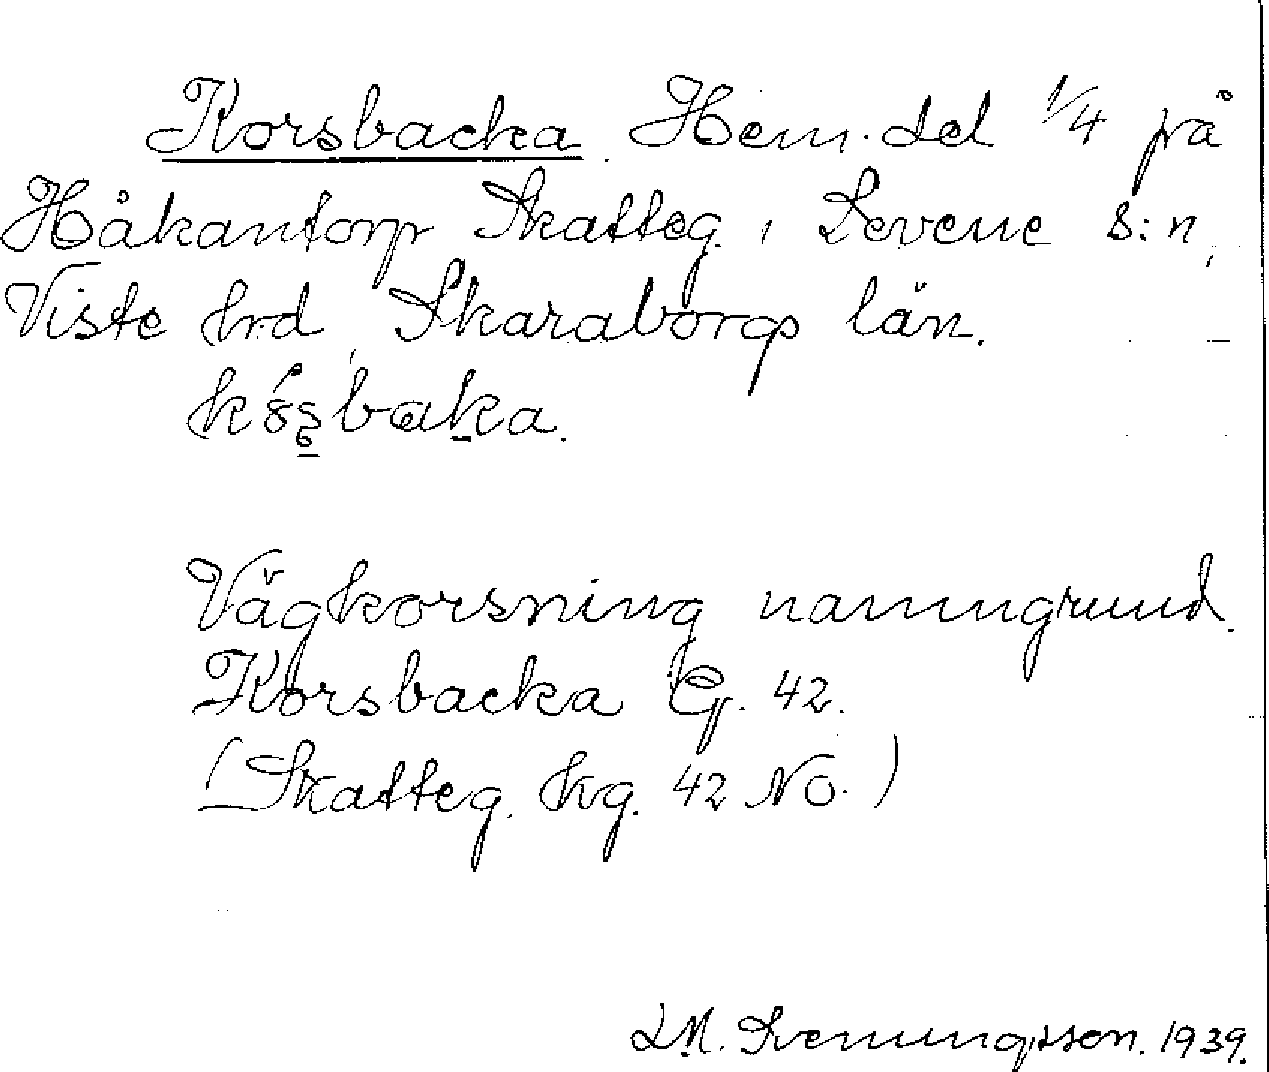 Korsbacka. Hem. del 1/4 på
Håkantorp Skatteg. i Levene s:n,
Viste hrd, Skaraborgs län.
Vägkorsning namngrund.
Korsbacka G. 42.
(Skatteg. hg. 42 NO.)
1939.